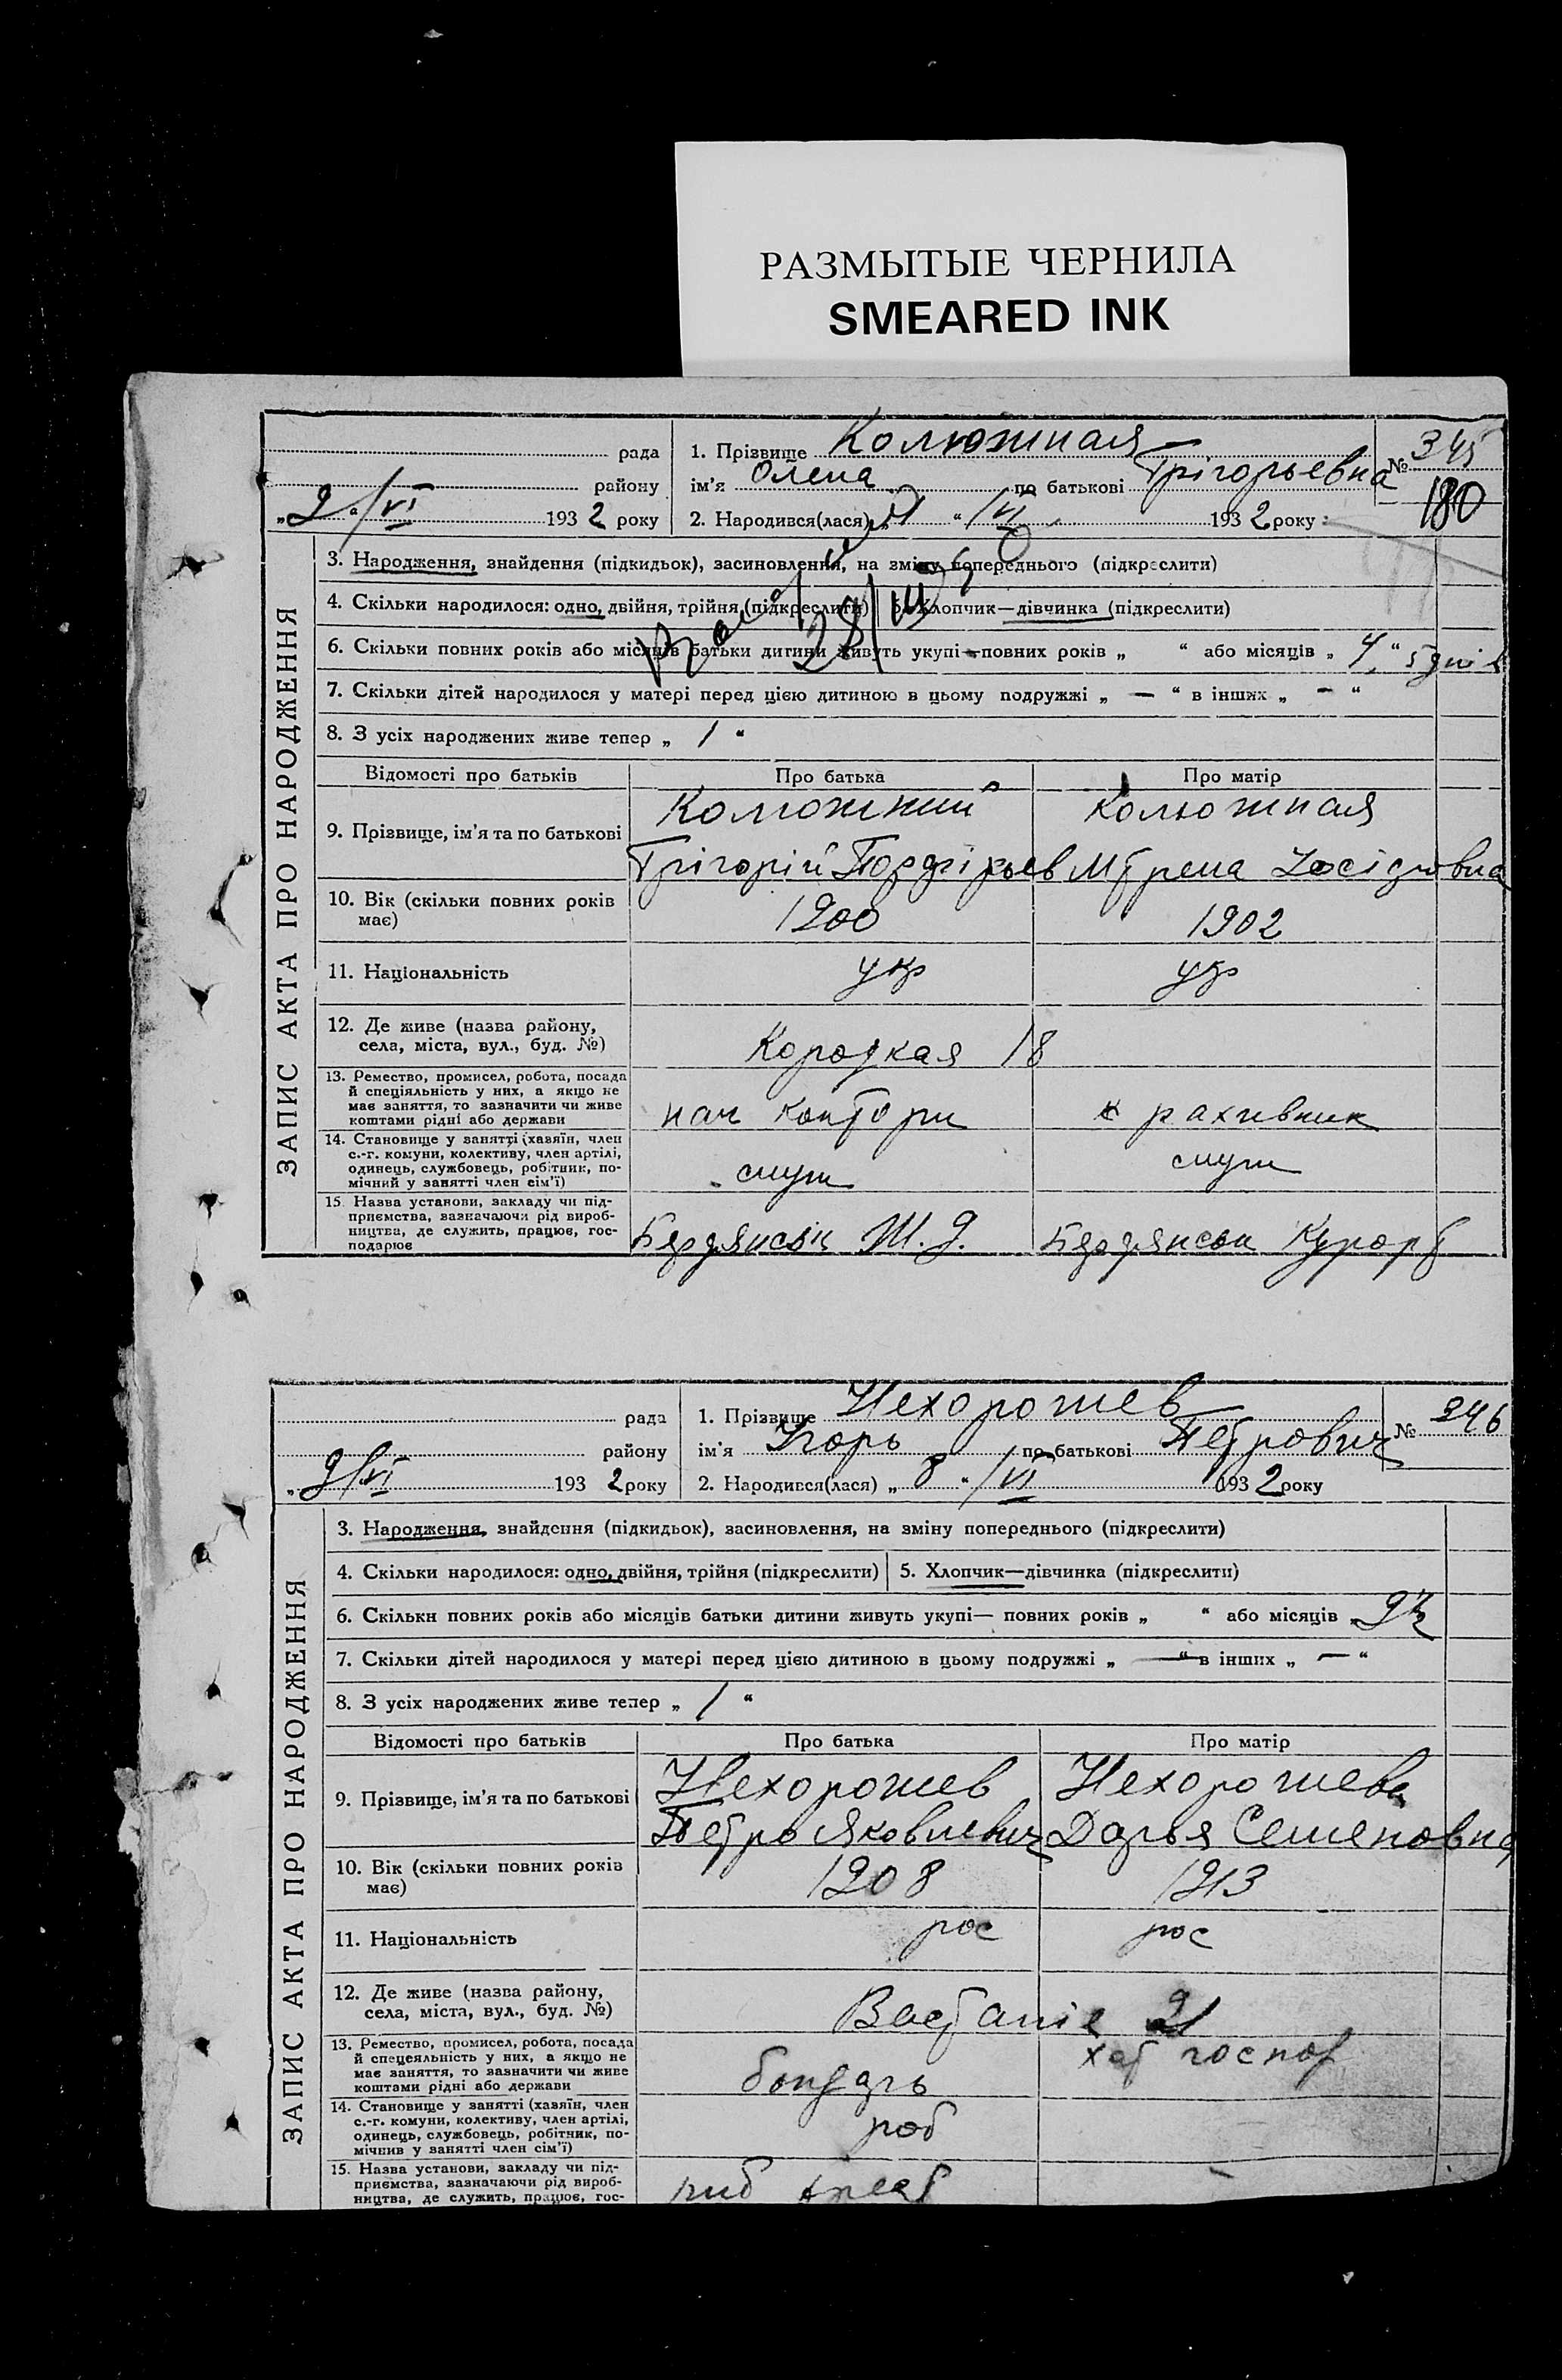 РАЗМЫТЫЕ ЧЕРНИЛА
SMEARED INK
ЗАПИС АКТА ПРО НАРОДЖЕННЯ
рада
району
„9“/VI 1932 року
1. Прізвище Колюжная
ім’я Олена по батькові Грігорьевна
№ 345
180
2. Народився(лася) „ “ /VI 1932 року
3. Народження, знайдення (підкидьок), засиновлення, на зміну попереднього (підкреслити)
4. Скільки народилося: одно, двійня, трійня (підкреслити) 5. Хлопчик—дівчинка (підкреслити)
28/III
6. Скільки повних років або місяців батьки дитини живуть укупі—повних років „ “ або місяців „ 4 “ 5 днів
7. Скільки дітей народилося у матері перед цією дитиною в цьому подружжі „ — “ в інших „ — “
8. З усіх народжених живе тепер „ 1 “
Відомості про батьків Про батька Про матір
9. Прізвище, ім’я та по батькові
Колюжний Колюжная
Грігорій Порфірьев Мтрена Іосіповна
10. Вік (скільки повних років має) 1900 1902
11. Національність укр укр
12. Де живе (назва району, села, міста, вул., буд. №) Кородкая 18
13. Ремество, промисел, робота, посада
й спеціяльність у них, а якщо не
має заняття, то зазначити чи живе
коштами рідні або держави
нач контори рахівник
14. Становище у занятті (хазяїн, член
с.-г. комуни, колективу, член артілі,
одинець, службовець, робітник, по-
мічний у занятті член сім’ї)
служ служ
15. Назва установи, закладу чи під-
приємства, зазначаючи рід вироб-
ництва, де служить, працює, гос-
подарює
Бердянськ Ж.Д. Бердянськ Курорт
ЗАПИС АКТА ПРО НАРОДЖЕННЯ
рада
району
„9/VI 1932 року
1. Прізвище Нехорошев
ім’я Ігорь по батькові Петрович
№ 346
2. Народився(лася) „ 8 “ /VI 1932 року
3. Народження, знайдення (підкидьок), засиновлення, на зміну попереднього (підкреслити)
4. Скільки народилося: одно, двійня, трійня (підкреслити) 5. Хлопчик—дівчинка (підкреслити)
6. Скільки повних років або місяців батьки дитини живуть укупі— повних років „ “ або місяців
7. Скільки дітей народилося у матері перед цією дитиною в цьому подружжі „ — “ в інших „ — “
8. З усіх народжених живе тепер „ 1 “
Відомості про батьків Про батька Про матір
9. Прізвище, ім’я та по батькові
Нехорошев Нехорошева
Петро Яковлевич Дарья Семеновна
10. Вік (скільки повних років має) 1908 1913
11. Національність рос рос
12. Де живе (назва району, села, міста, вул., буд. №) Востаніе 21
13. Ремество, промисел, робота, посада
й спецеяльність у них, а якщо не
має заняття, то зазначити чи живе
коштами рідні або держави
бондарь хат госпор
14. Становище у занятті (хазяїн, член
с.-г. комуни, колективу, член артілі,
одинець, службовець, робітник, по-
мічнив у занятті член сім’ї)
роб
15. Назва установи, закладу чи під-
приємства, зазначаючи рід вироб-
ництва, де служить, працює, гос-
риб трест